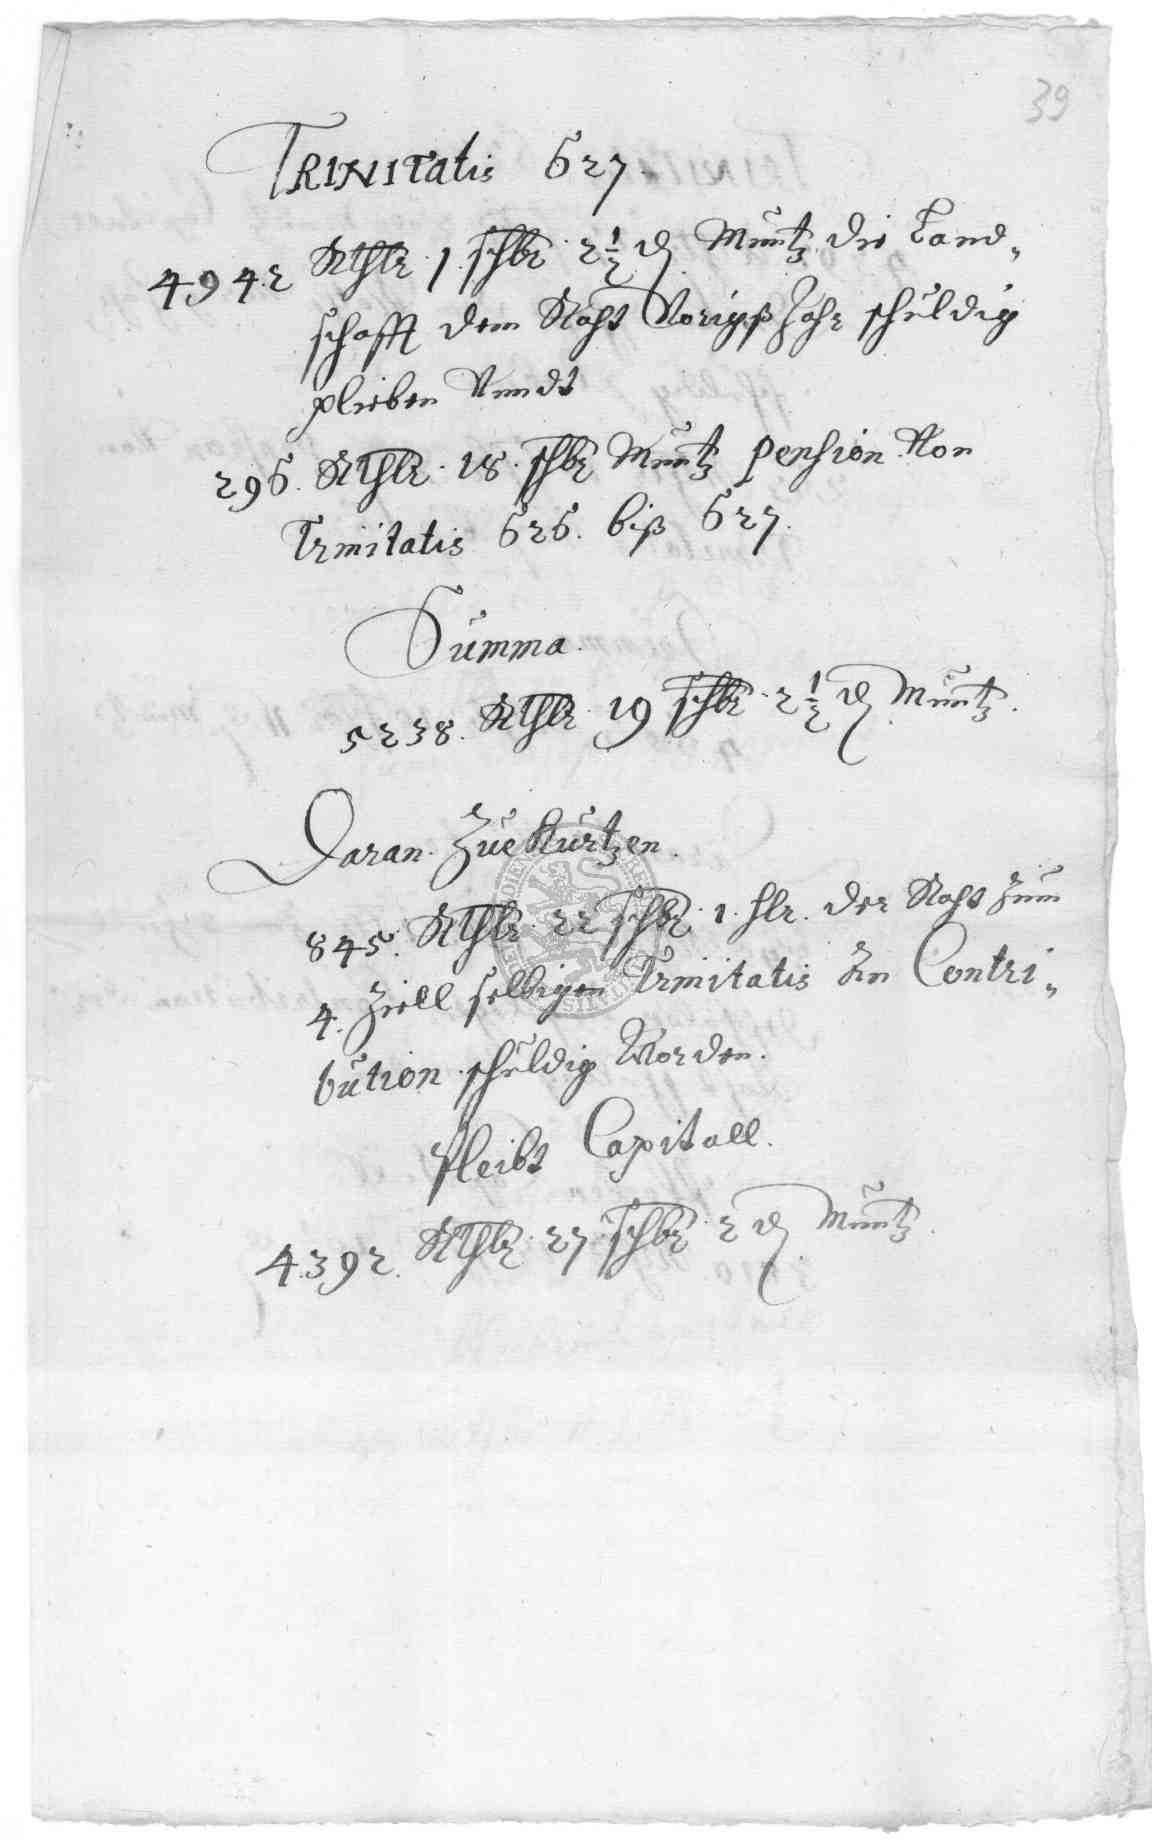 39
TRINITatis 627.
4942 Rthlr. 1. schlr. 2½ d. Müntz die Land„
schafft dem Raht Vorigß Jahr schüldig
plieben Vnndt
296. Rthlr. 18. schlr Müntz pension Von
Trinitatis 626. biß 627.
Summa.
5238. Rthlr 19 schlr. 2½ d. Müntz.
Daran Zue Kürtzen.
845. Rthlr. 22 schlr. 1. hlr. der Raht Zum
4. Ziell selbigen Trinitatis An Contri„
bution schüldig Worden.
Pleibt Capitall.
4392. Rthlr. 27 schlr. 2 d. Müntz.